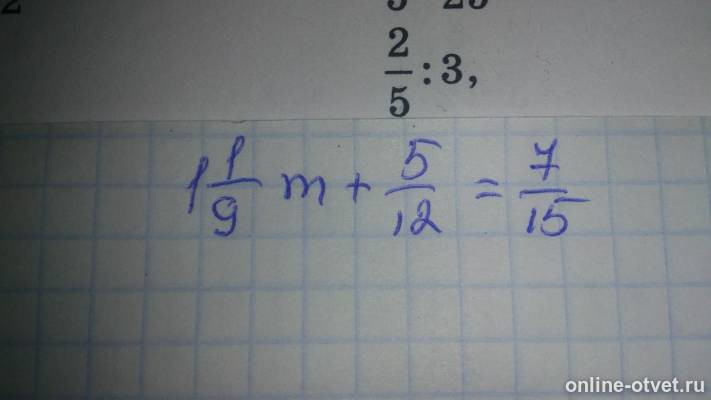 2
2/5 : 3,
1 1/9 m + 5/12 = 7/15
online-otvet.ru